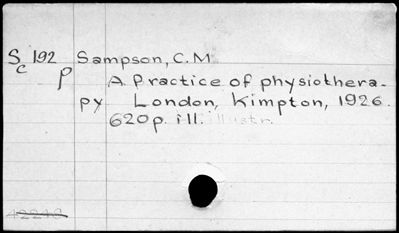 Sc 192 Sampson, C.M.
p A Practice of physiothera-
py London, Kimpton, 1926.
620p. ill. illustr.
42248